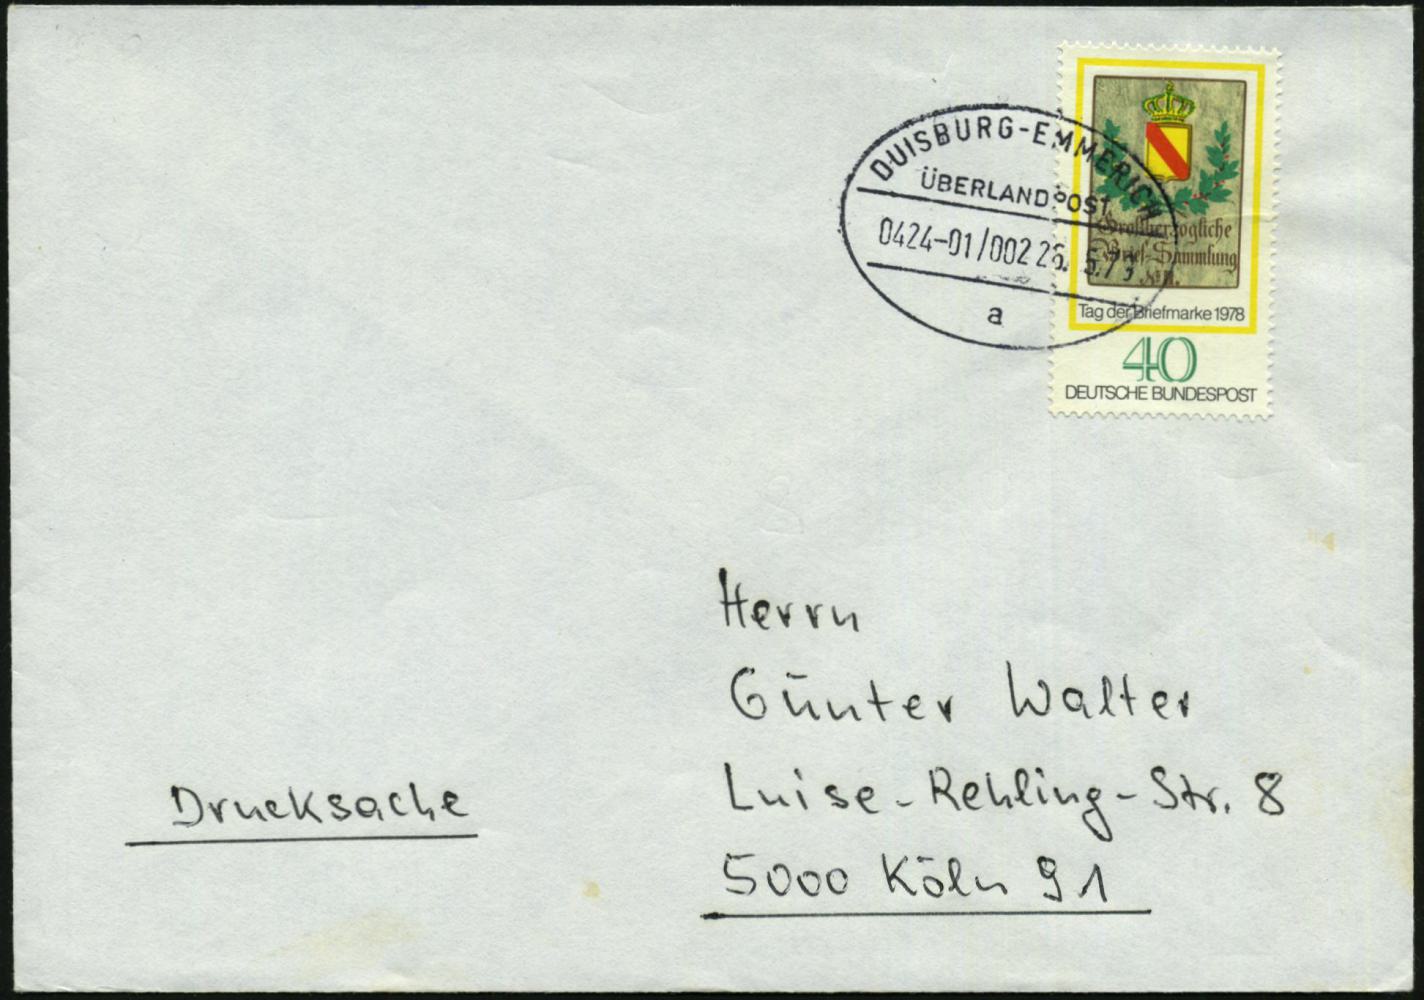 DUISBURG-EMMERICH
ÜBERLANDPOST
0424-01/002 26. 5.79
a
Großherzogliche
Brief-Sammlung
No. 11.
Tag der Briefmarke 1978
40
DEUTSCHE BUNDESPOST
Herrn
Günter Walter
Luise-Rehling-Str. 8
5000 Köln 91
Drucksache